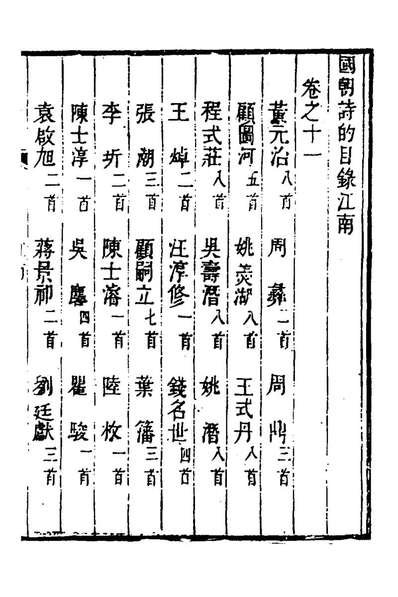 國朝詩的目錄江南
卷之十一
董元治八首 周彝二首 周鼎三首
顧圖河五首 姚炎湖八首 王式丹八首
程式莊八首 吳壽潛八首 姚潛八首
王焯二首 汪淳修一首 錢名世四首
張潮三首 顧嗣立七首 葉藩三首
李圻二首 陳士濬一首 陸枚一首
陳士淳一首 吳鏖四首 瞿駿一首
袁啟旭二首 蔣景祁二首 劉廷獻三首